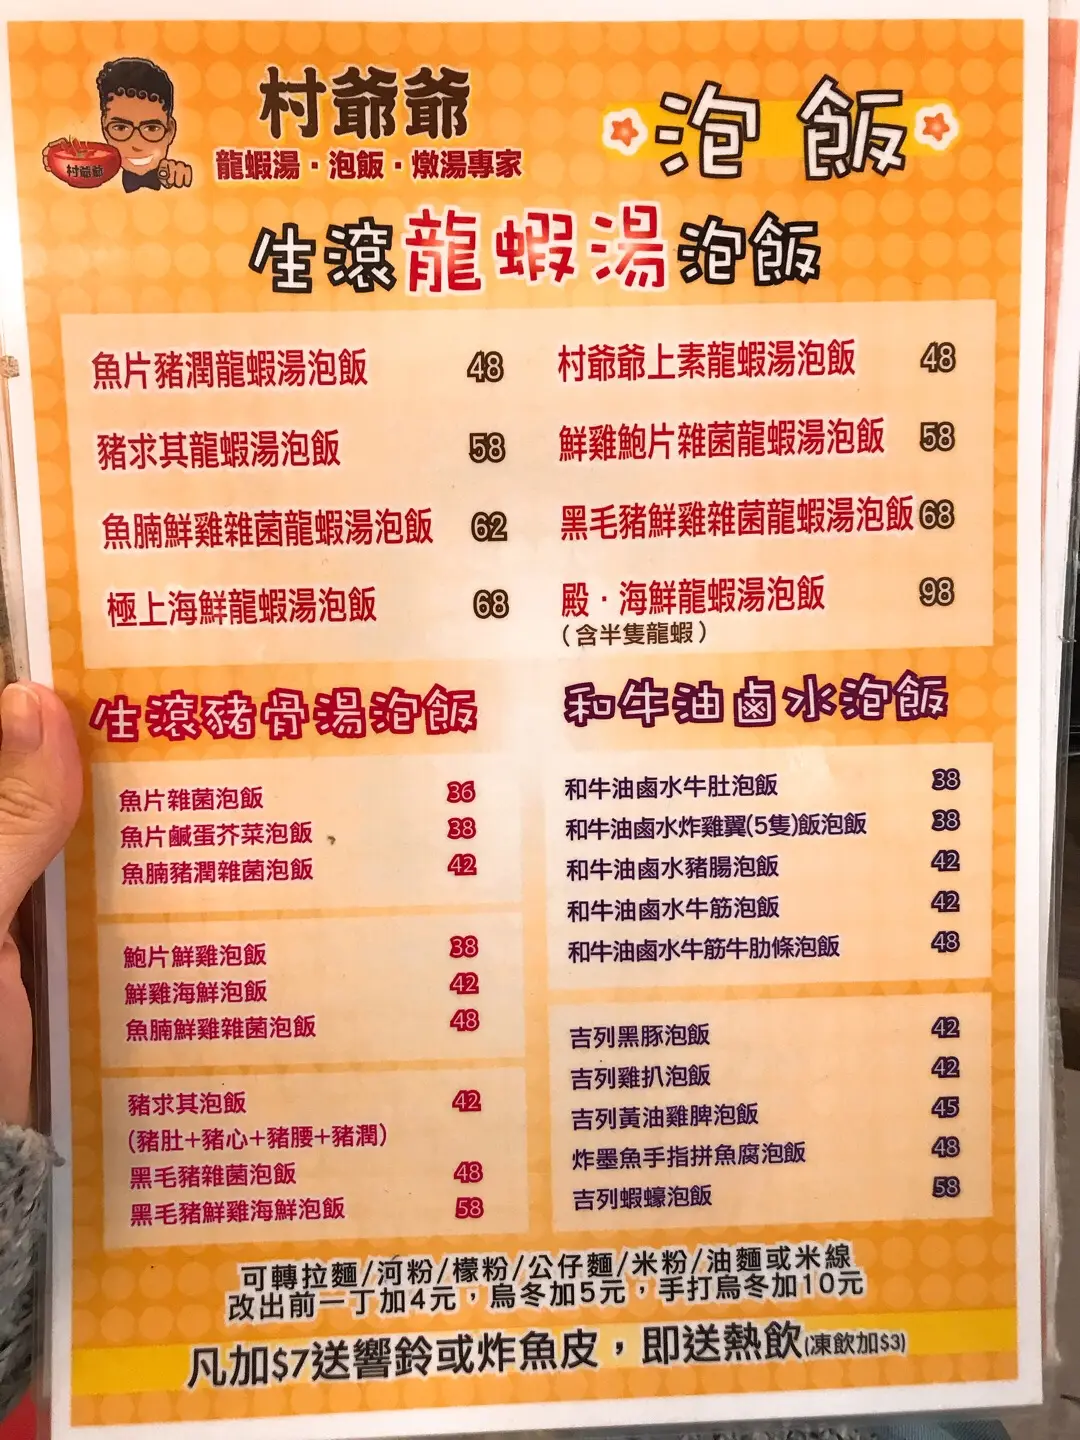 村爺爺
龍蝦湯・泡飯・燉湯專家
村爺爺
泡飯
生滾龍蝦湯泡飯
魚片豬潤龍蝦湯泡飯 48
豬求其龍蝦湯泡飯 58
魚腩鮮雞雜菌龍蝦湯泡飯 62
極上海鮮龍蝦湯泡飯 68
村爺爺上素龍蝦湯泡飯 48
鮮雞鮑片雜菌龍蝦湯泡飯 58
黑毛豬鮮雞雜菌龍蝦湯泡飯 68
殿・海鮮龍蝦湯泡飯 98
(含半隻龍蝦)
生滾豬骨湯泡飯
魚片雜菌泡飯 36
魚片鹹蛋芥菜泡飯 38
魚腩豬潤雜菌泡飯 42
鮑片鮮雞泡飯 38
鮮雞海鮮泡飯 42
魚腩鮮雞雜菌泡飯 48
豬求其泡飯 42
(豬肚+豬心+豬腰+豬潤)
黑毛豬雜菌泡飯 48
黑毛豬鮮雞海鮮泡飯 58
和牛油鹵水泡飯
和牛油鹵水牛肚泡飯 38
和牛油鹵水炸雞翼(5隻)飯泡飯 38
和牛油鹵水豬腸泡飯 42
和牛油鹵水牛筋泡飯 42
和牛油鹵水牛筋牛肋條泡飯 48
吉列黑豚泡飯 42
吉列雞扒泡飯 42
吉列黃油雞脾泡飯 45
炸墨魚手指拼魚腐泡飯 48
吉列蝦蠔泡飯 58
可轉拉麵/河粉/檬粉/公仔麵/米粉/油麵或米線
改出前一丁加4元，烏冬加5元，手打烏冬加10元
凡加$7送響鈴或炸魚皮，即送熱飲(凍飲加$3)